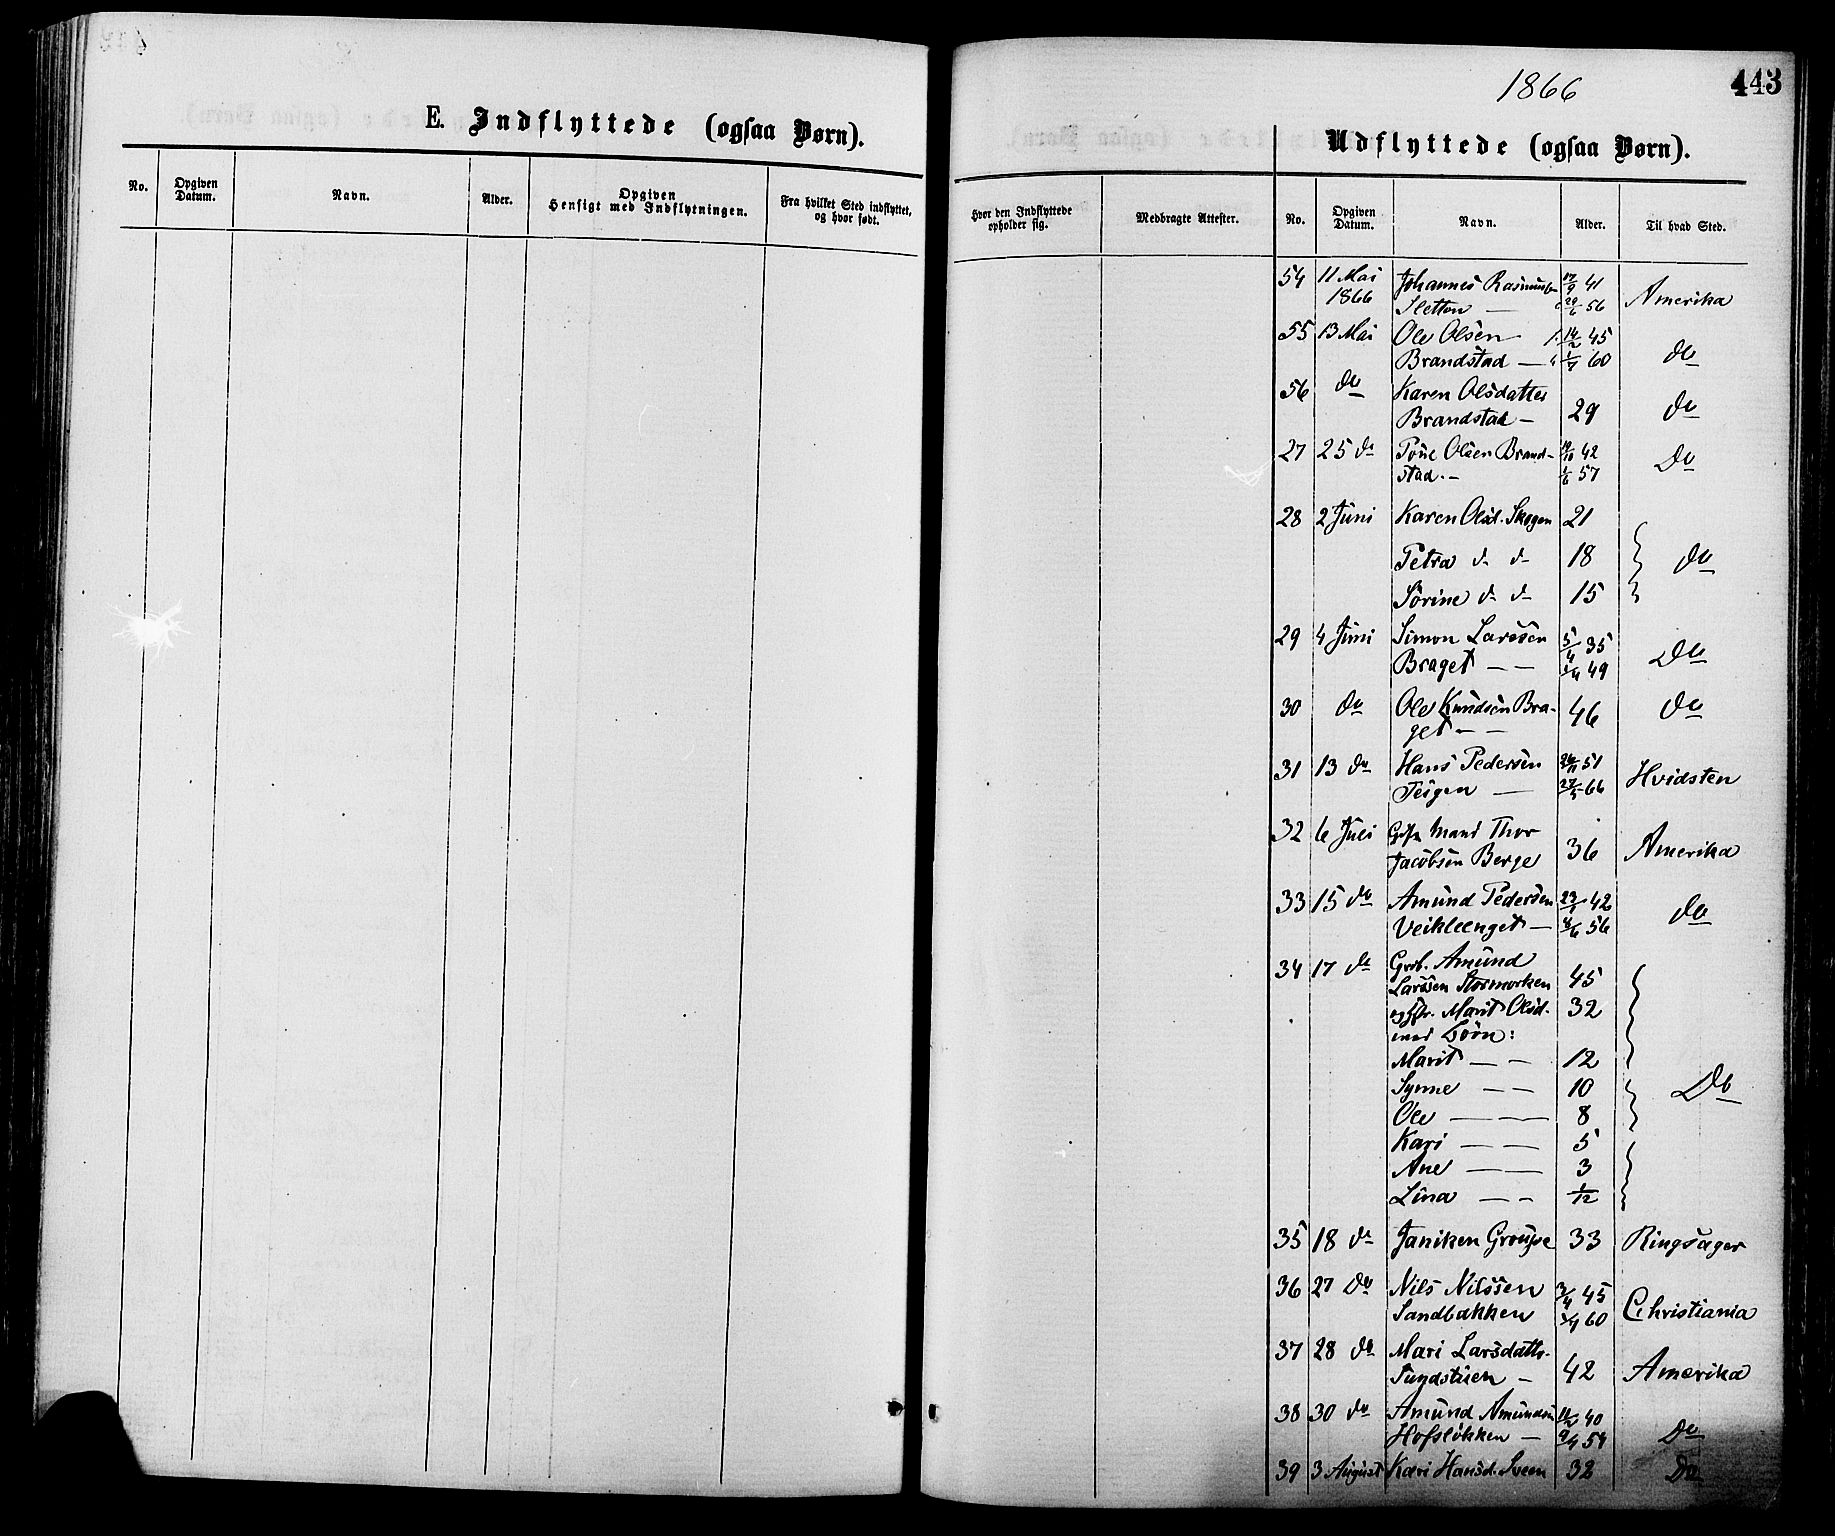 E. Indflyttede (ogsaa Børn).
No.
Opgiven Datum.
Navn.
Alder.
Opgiven Hensigt med Indflytningen.
Fra hvilket Sted indflyttet, og hvor født.
1866
443
Udflyttede (ogsaa Børn).
Hvor den Indflyttede opholder sig.
Medbragte Attester.
No.
Opgiven Datum.
Navn.
Alder.
Til hvad Sted.
54 11 Mai Johannes Rasmussen 17/9 41
1866 Sletten — 29/6 56 Amerika
55 13 Mai Ole Olsen 14/2 45
Brandstad — 1/7 60 Do
56 Do Karen Olsdatter
Brandstad — 29 Do
27 25 do Olsen Brand- 10/10 42
stad. — 1/6 57 Do
28 2 Juni Karen Olsd. Skogen 21
Petra d- d- 18 Do
Sörine d- d- 15
29 4 Juni Simon Larssen 5/4 35
Braget — — 49 Do
30 Do Ole Knudsen Bra-
get — — 46 Do
31 13 do Hans Pedersen 51
Teigen — 27/5 66 Hvidsten
32 6 Juli Mand Thor
Jacobsen Berge 36 Amerika
33 15 do Amund Pedersen 42
Veikleenget — 56 Do
34 17 do Grdb. Amund
Larssen Stormorken 45
og Marit Olsd. 32
med Börn:
Marit — — 12
Synne — — 10 Do
Ole — — 8
Kari — — 5
Ane — — 3
Lina — — 1/12
35 18 do Janiken Groupe 33 Ringsager
36 27 Do Nils Nilssen 3/4 45
Sandbakken 60 Christiania
37 28 do Mari Larsdattr.
Tundstuen — 42 Amerika
38 30 do Amund Amundsen 11/2 40
Hofslökken — Do
39 3 August Kari Hansd. Sveen 32 Do